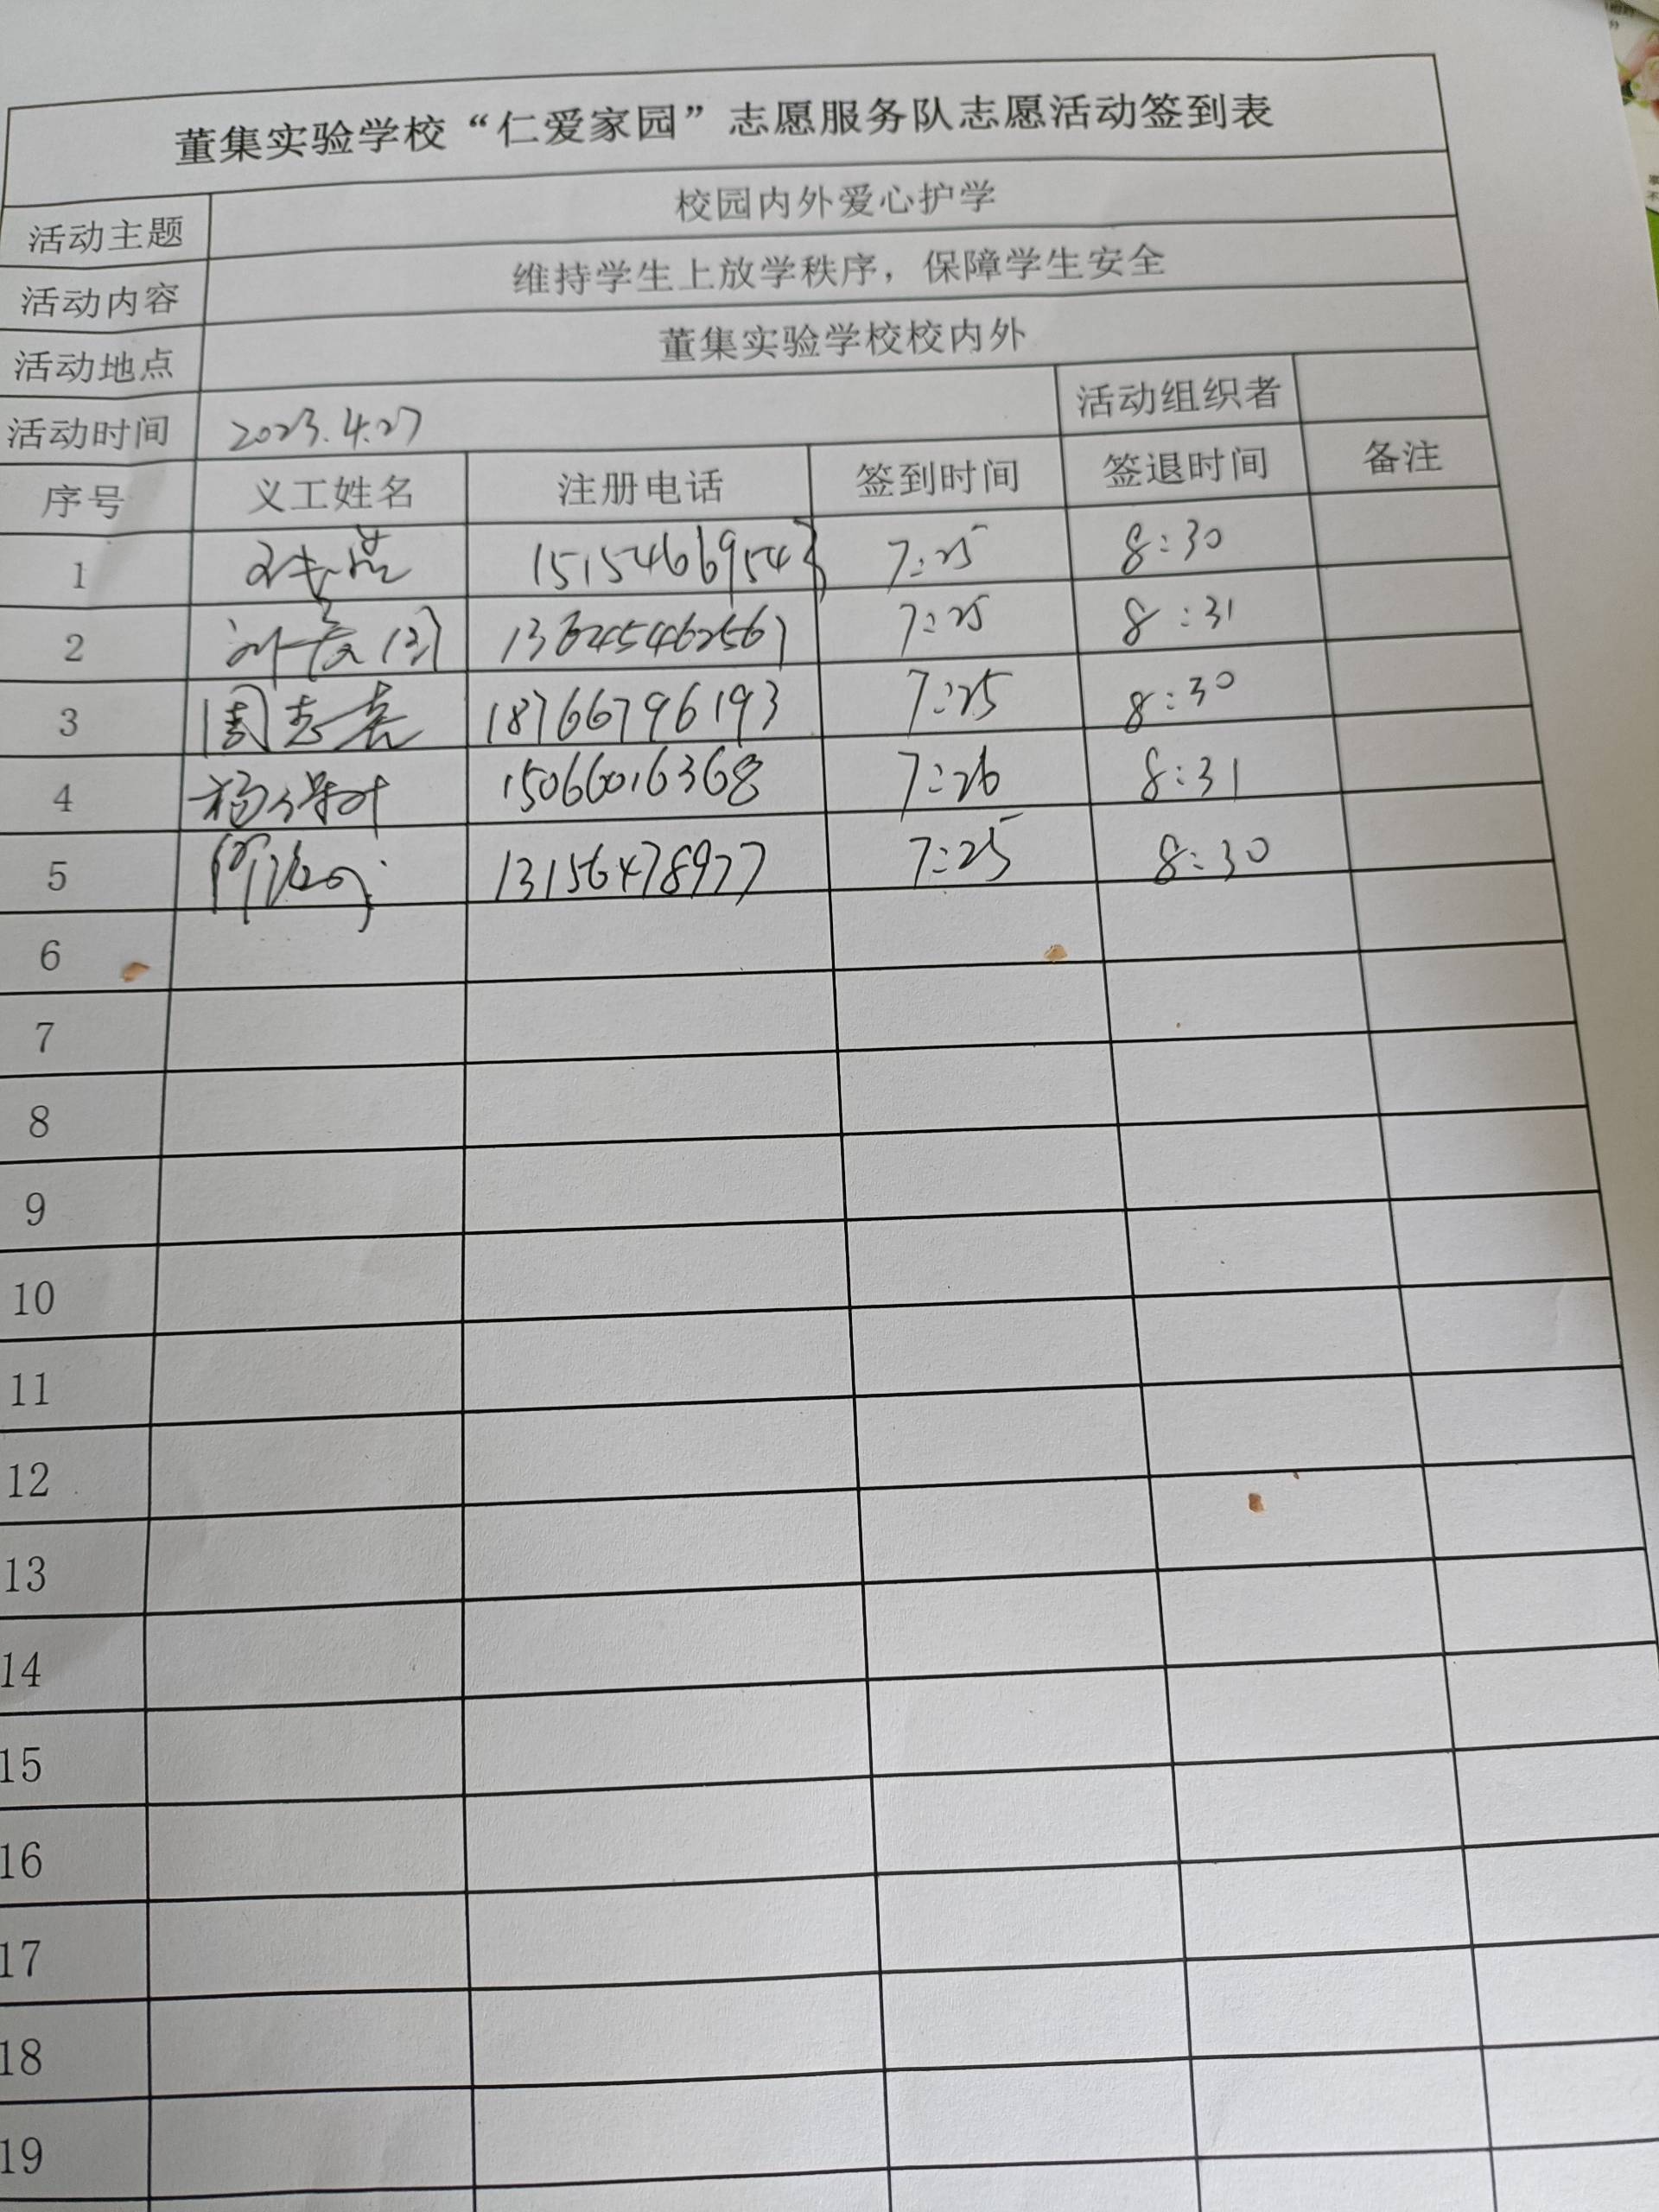 董集实验学校“仁爱家园”志愿服务队志愿活动签到表
活动主题 校园内外爱心护学
活动内容 维持学生上放学秩序，保障学生安全
活动地点 董集实验学校校内外
活动时间 2023.4.27 活动组织者
序号 义工姓名 注册电话 签到时间 签退时间 备注
1 15154669543 7:25 8:30
2 7:25 8:31
3 周志尧 18766796193 7:25 8:30
4 15066016368 7:26 8:31
5 13156478977 7:25 8:30
6
7
8
9
10
11
12
13
14
15
16
17
18
19